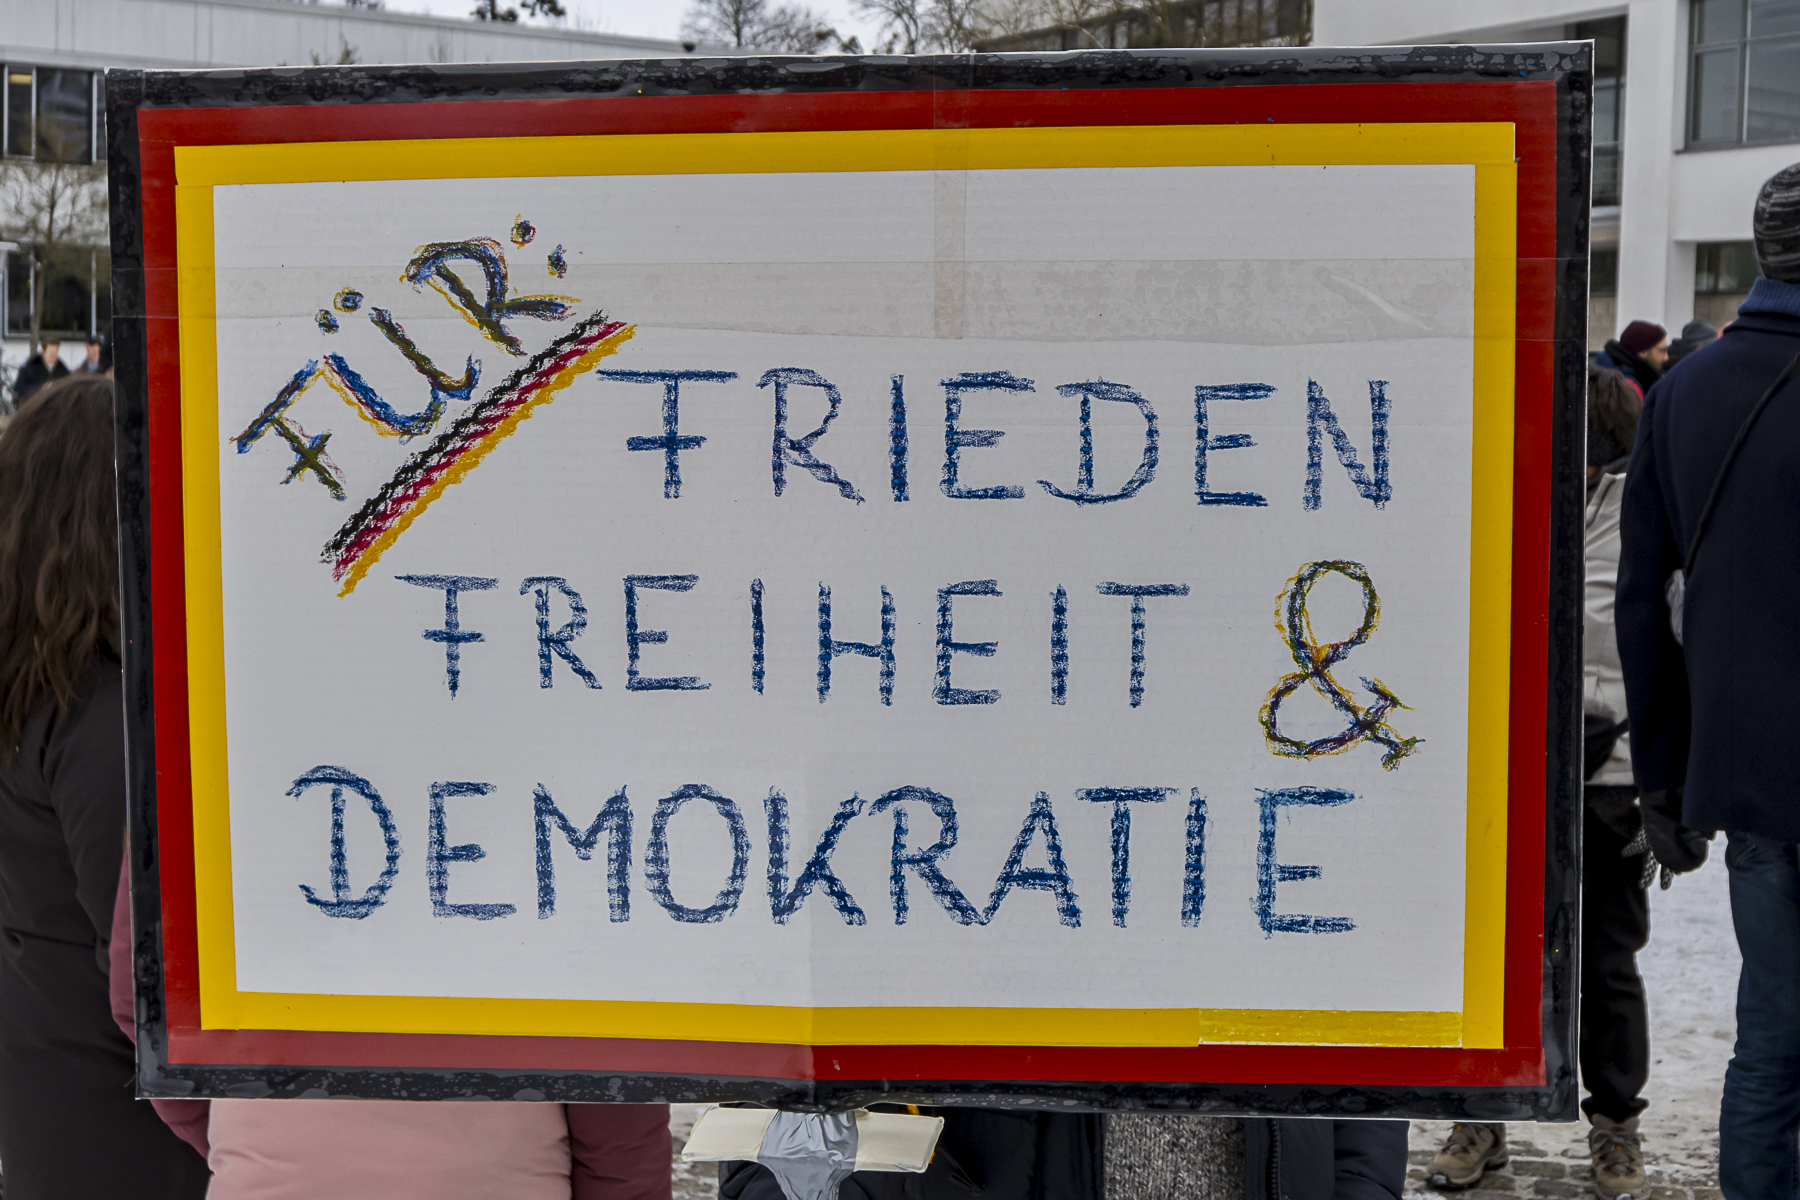 FÜR:
FRIEDEN
FREIHEIT &
DEMOKRATIE